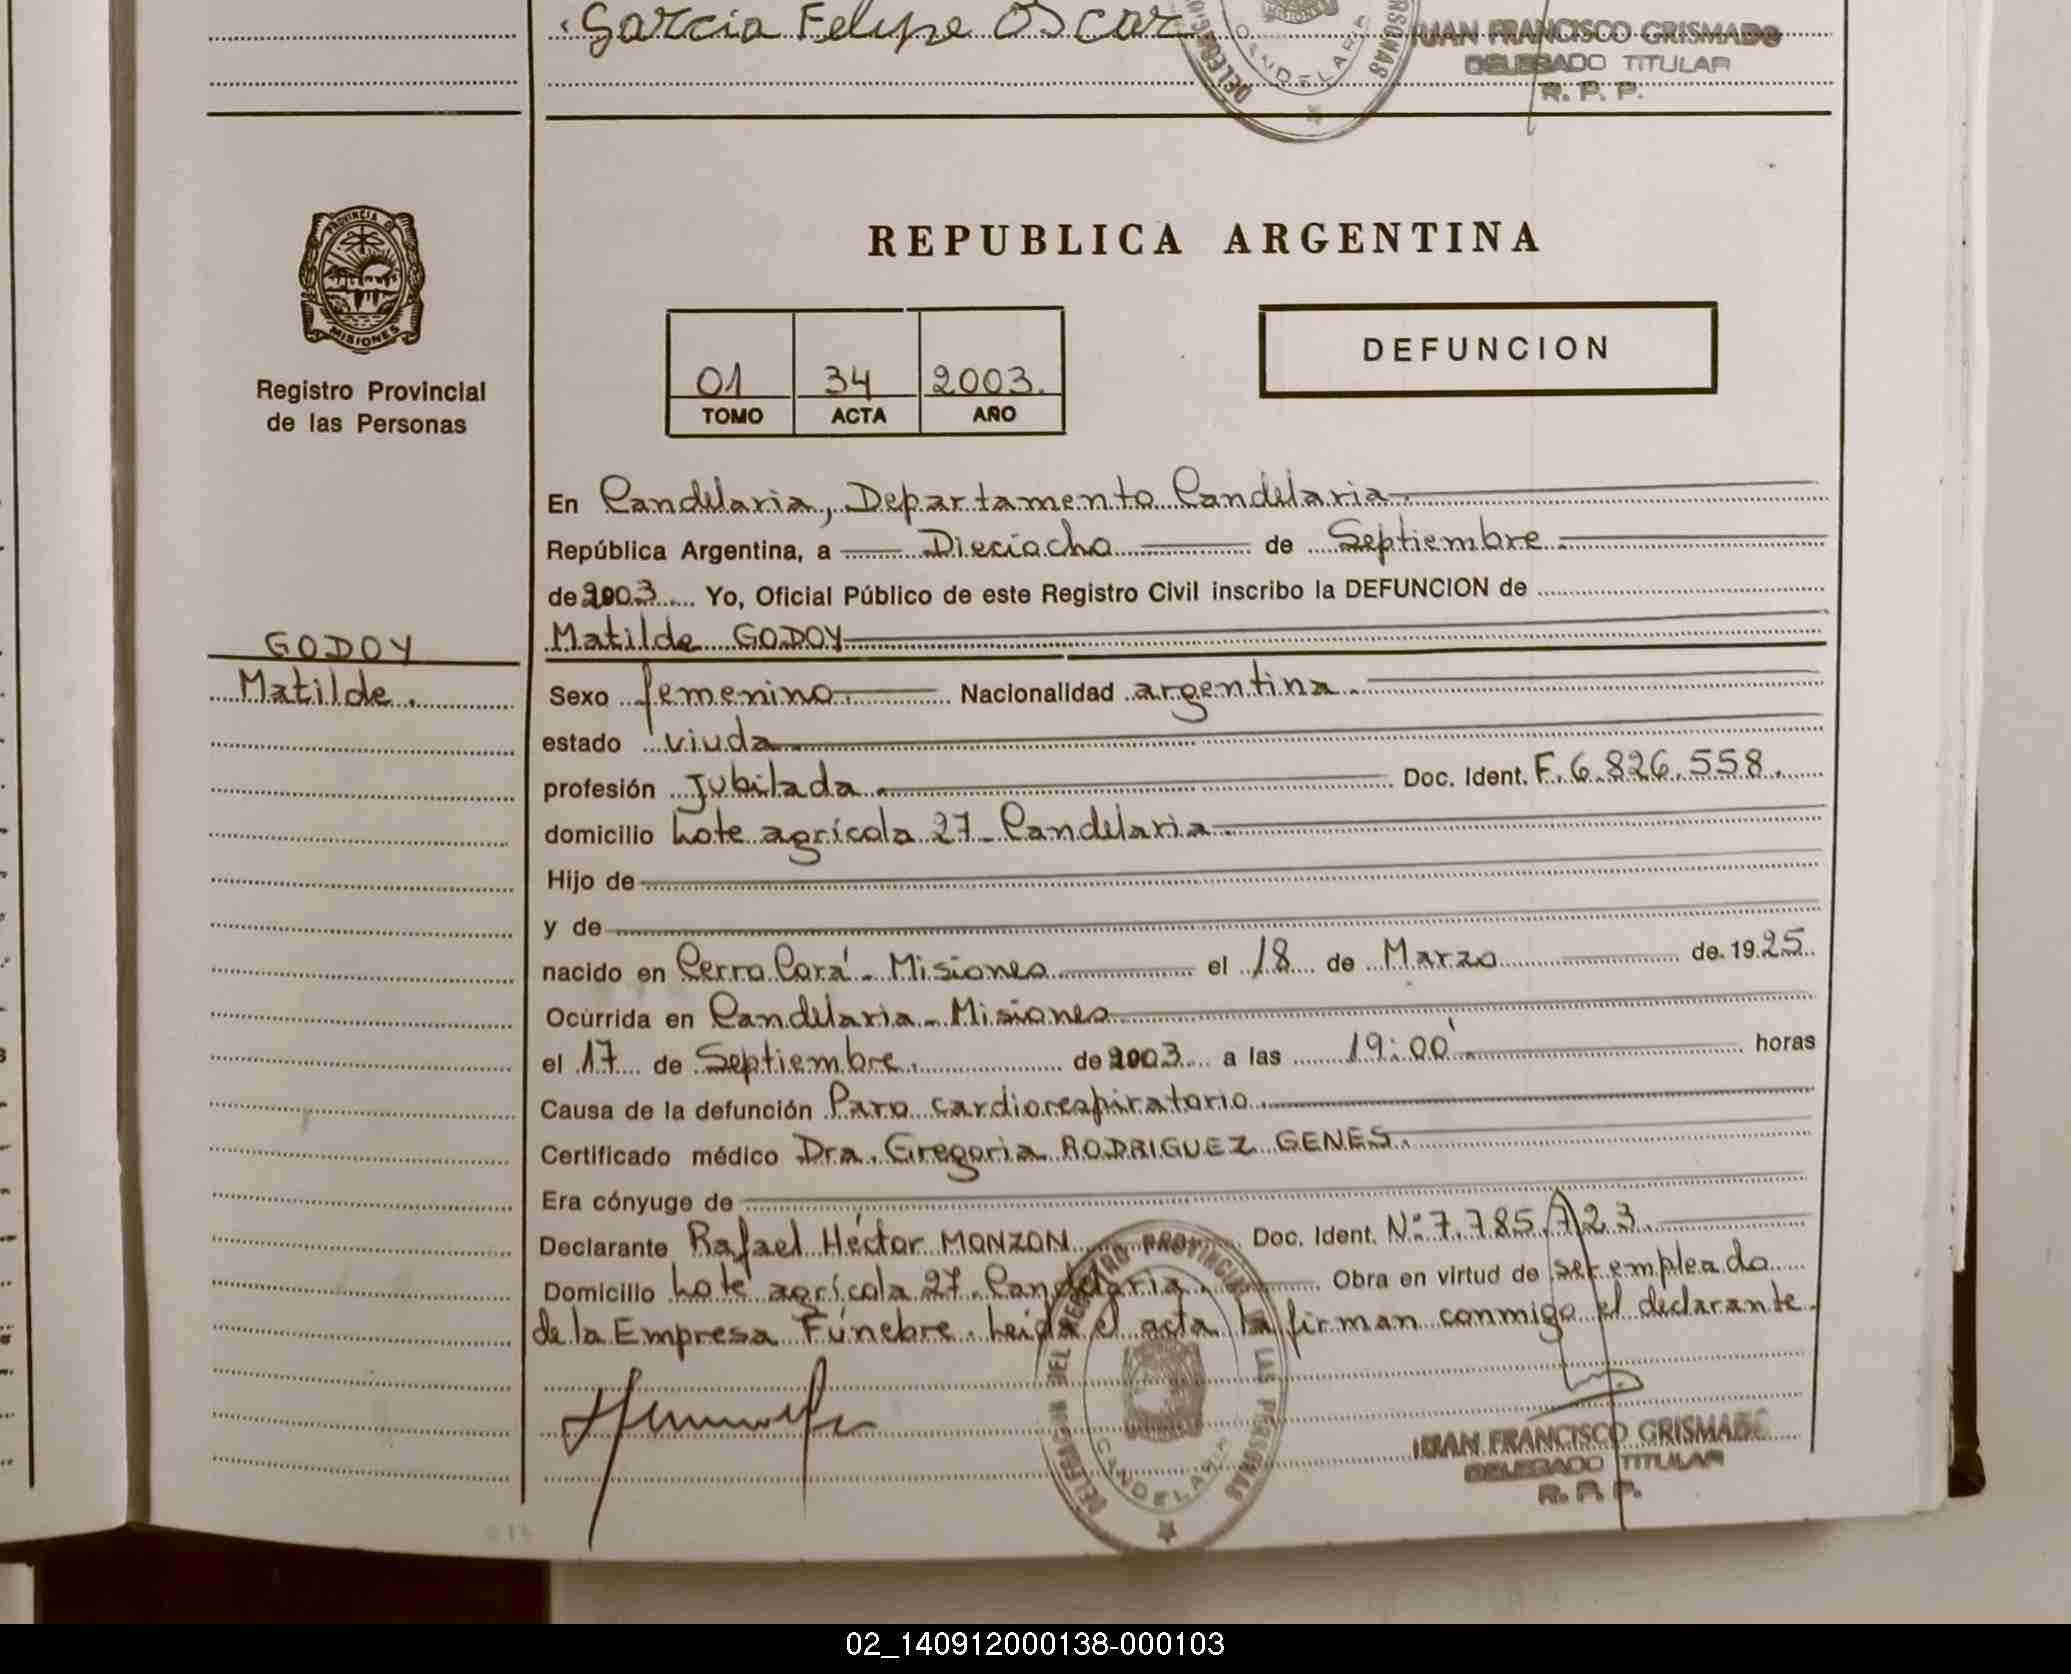 Garcia Felipe Oscar
JUAN FRANCISCO GRISMADO
DELEGADO TITULAR
R. P. P.
CANDELARIA
PROVINCIA DE
MISIONES
Registro Provincial
de las Personas
REPUBLICA ARGENTINA
01 34 2003.
TOMO ACTA AÑO
DEFUNCION
En Candelaria, Departamento Candelaria.
República Argentina, a Dieciocho de Septiembre.
de 2003 Yo, Oficial Público de este Registro Civil inscribo la DEFUNCION de
GODOY
Matilde.
Matilde GODOY
Sexo femenino. Nacionalidad argentina.
estado viuda.
profesión Jubilada. Doc. Ident. F.6.826.558.
domicilio Lote agrícola 27_ Candelaria.
Hijo de
y de
nacido en Cerro Corá_ Misiones el 18 de Marzo de 1925
Ocurrida en Candelaria_ Misiones
el 17 de Septiembre. de 2003 a las 19:00' horas
Causa de la defunción Paro cardiorespiratorio.
Certificado médico Dra. Gregoria RODRIGUEZ GENES.
Era cónyuge de
Declarante Rafael Héctor MONZON Doc. Ident. Nº 7.785.723.
Domicilio Lote agrícola 27. Candelaria. Obra en virtud de ser empleado
de la Empresa Fúnebre. Leida el acta la firman conmigo el declarante.
DELEGACION DEL REGISTRO PROVINCIAL DE LAS PERSONAS
CANDELARIA
JUAN FRANCISCO GRISMADO
DELEGADO TITULAR
R. P. P.
02_140912000138-000103